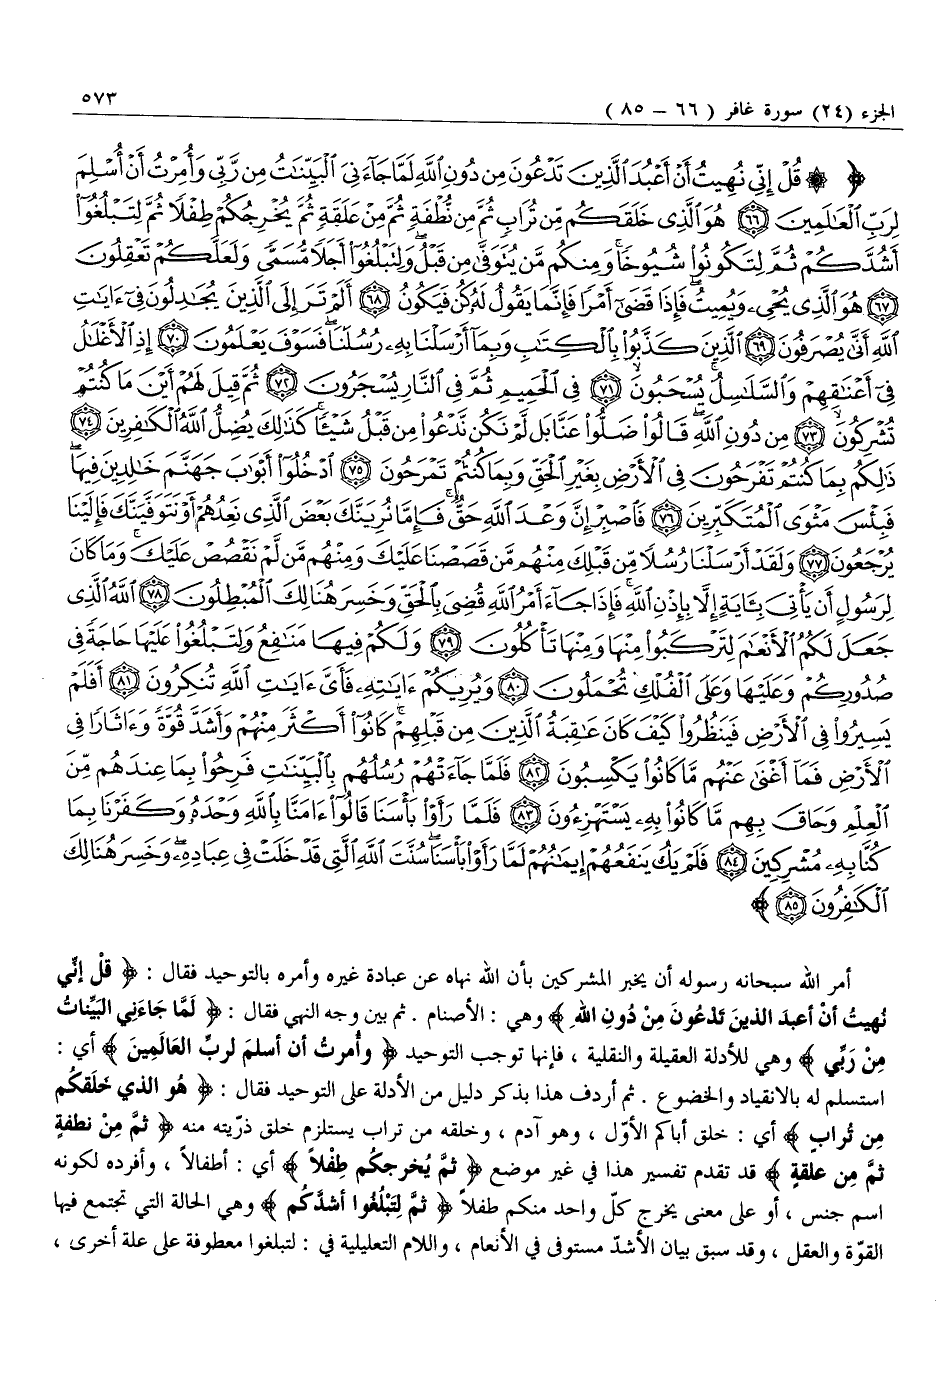 الجزء (٢٤) سورة غافر ( ٦٦ – ٨٥ ) ٥٧٣
﴿ ۞ قُلْ إِنِّي نُهِيتُ أَنْ أَعْبُدَ ٱلَّذِينَ تَدْعُونَ مِن دُونِ ٱللَّهِ لَمَّا جَآءَنِيَ ٱلْبَيِّنَٰتُ مِن رَّبِّي وَأُمِرْتُ أَنْ أُسْلِمَ
لِرَبِّ ٱلْعَٰلَمِينَ ٦٦ هُوَ ٱلَّذِي خَلَقَكُم مِّن تُرَابٍ ثُمَّ مِن نُّطْفَةٍ ثُمَّ مِنْ عَلَقَةٍ ثُمَّ يُخْرِجُكُمْ طِفْلًا ثُمَّ لِتَبْلُغُوٓا۟
أَشُدَّكُمْ ثُمَّ لِتَكُونُوا۟ شُيُوخًا ۚ وَمِنكُم مَّن يُتَوَفَّىٰ مِن قَبْلُ ۖ وَلِتَبْلُغُوٓا۟ أَجَلًا مُّسَمًّى وَلَعَلَّكُمْ تَعْقِلُونَ
٦٧ هُوَ ٱلَّذِي يُحْيِۦ وَيُمِيتُ ۖ فَإِذَا قَضَىٰٓ أَمْرًا فَإِنَّمَا يَقُولُ لَهُۥ كُن فَيَكُونُ ٦٨ أَلَمْ تَرَ إِلَى ٱلَّذِينَ يُجَٰدِلُونَ فِيٓ ءَايَٰتِ
ٱللَّهِ أَنَّىٰ يُصْرَفُونَ ٦٩ ٱلَّذِينَ كَذَّبُوا۟ بِٱلْكِتَٰبِ وَبِمَآ أَرْسَلْنَا بِهِۦ رُسُلَنَا ۖ فَسَوْفَ يَعْلَمُونَ ٧٠ إِذِ ٱلْأَغْلَٰلُ
فِيٓ أَعْنَٰقِهِمْ وَٱلسَّلَٰسِلُ يُسْحَبُونَ ٧١ فِي ٱلْحَمِيمِ ثُمَّ فِي ٱلنَّارِ يُسْجَرُونَ ٧٢ ثُمَّ قِيلَ لَهُمْ أَيْنَ مَا كُنتُمْ
تُشْرِكُونَ ٧٣ مِن دُونِ ٱللَّهِ ۖ قَالُوا۟ ضَلُّوا۟ عَنَّا بَل لَّمْ نَكُن نَّدْعُوا۟ مِن قَبْلُ شَيْـًٔا ۚ كَذَٰلِكَ يُضِلُّ ٱللَّهُ ٱلْكَٰفِرِينَ ٧٤
ذَٰلِكُم بِمَا كُنتُمْ تَفْرَحُونَ فِي ٱلْأَرْضِ بِغَيْرِ ٱلْحَقِّ وَبِمَا كُنتُمْ تَمْرَحُونَ ٧٥ ٱدْخُلُوٓا۟ أَبْوَٰبَ جَهَنَّمَ خَٰلِدِينَ فِيهَا ۖ
فَبِئْسَ مَثْوَى ٱلْمُتَكَبِّرِينَ ٧٦ فَٱصْبِرْ إِنَّ وَعْدَ ٱللَّهِ حَقٌّ ۚ فَإِمَّا نُرِيَنَّكَ بَعْضَ ٱلَّذِي نَعِدُهُمْ أَوْ نَتَوَفَّيَنَّكَ فَإِلَيْنَا
يُرْجَعُونَ ٧٧ وَلَقَدْ أَرْسَلْنَا رُسُلًا مِّن قَبْلِكَ مِنْهُم مَّن قَصَصْنَا عَلَيْكَ وَمِنْهُم مَّن لَّمْ نَقْصُصْ عَلَيْكَ ۗ وَمَا كَانَ
لِرَسُولٍ أَن يَأْتِيَ بِـَٔايَةٍ إِلَّا بِإِذْنِ ٱللَّهِ ۚ فَإِذَا جَآءَ أَمْرُ ٱللَّهِ قُضِيَ بِٱلْحَقِّ وَخَسِرَ هُنَالِكَ ٱلْمُبْطِلُونَ ٧٨ ٱللَّهُ ٱلَّذِي
جَعَلَ لَكُمُ ٱلْأَنْعَٰمَ لِتَرْكَبُوا۟ مِنْهَا وَمِنْهَا تَأْكُلُونَ ٧٩ وَلَكُمْ فِيهَا مَنَٰفِعُ وَلِتَبْلُغُوا۟ عَلَيْهَا حَاجَةً فِي
صُدُورِكُمْ وَعَلَيْهَا وَعَلَى ٱلْفُلْكِ تُحْمَلُونَ ٨٠ وَيُرِيكُمْ ءَايَٰتِهِۦ فَأَيَّ ءَايَٰتِ ٱللَّهِ تُنكِرُونَ ٨١ أَفَلَمْ
يَسِيرُوا۟ فِي ٱلْأَرْضِ فَيَنظُرُوا۟ كَيْفَ كَانَ عَٰقِبَةُ ٱلَّذِينَ مِن قَبْلِهِمْ ۚ كَانُوٓا۟ أَكْثَرَ مِنْهُمْ وَأَشَدَّ قُوَّةً وَءَاثَارًا فِي
ٱلْأَرْضِ فَمَآ أَغْنَىٰ عَنْهُم مَّا كَانُوا۟ يَكْسِبُونَ ٨٢ فَلَمَّا جَآءَتْهُمْ رُسُلُهُم بِٱلْبَيِّنَٰتِ فَرِحُوا۟ بِمَا عِندَهُم مِّنَ
ٱلْعِلْمِ وَحَاقَ بِهِم مَّا كَانُوا۟ بِهِۦ يَسْتَهْزِءُونَ ٨٣ فَلَمَّا رَأَوْا۟ بَأْسَنَا قَالُوٓا۟ ءَامَنَّا بِٱللَّهِ وَحْدَهُۥ وَكَفَرْنَا بِمَا
كُنَّا بِهِۦ مُشْرِكِينَ ٨٤ فَلَمْ يَكُ يَنفَعُهُمْ إِيمَٰنُهُمْ لَمَّا رَأَوْا۟ بَأْسَنَا ۖ سُنَّتَ ٱللَّهِ ٱلَّتِي قَدْ خَلَتْ فِي عِبَادِهِۦ ۖ وَخَسِرَ هُنَالِكَ
ٱلْكَٰفِرُونَ ٨٥ ﴾
أمر الله سبحانه رسوله أن يخبر المشركين بأن الله نهاه عن عبادة غيره وأمره بالتوحيد فقال : ﴿ قُلْ إنِّي
نُهيتُ أنْ أعبدَ الذينَ تَدْعُونَ مِنْ دُونِ اللهِ ﴾ وهي : الأصنام . ثم بين وجه النهي فقال : ﴿ لَمَّا جَاءَنِي البَيِّنَاتُ
مِنْ رَبِّي ﴾ وهي للأدلة العقيلة والنقلية ، فإنها توجب التوحيد ﴿ وأُمرتُ أن أسلمَ لربِّ العَالَمِينَ ﴾ أي :
استسلم له بالانقياد والخضوع . ثم أردف هذا بذكر دليل من الأدلة على التوحيد فقال : ﴿ هُو الذي خَلَقكُم
مِن تُرابٍ ﴾ أي : خلق أباكم الأوّل ، وهو آدم ، وخلقه من تراب يستلزم خلق ذرّيته منه ﴿ ثمَّ مِنْ نطفةٍ
ثمَّ مِن علقةٍ ﴾ قد تقدم تفسير هذا في غير موضع ﴿ ثمَّ يُخرجكُم طِفْلاً ﴾ أي : أطفالاً ، وأفرده لكونه
اسم جنس ، أو على معنى يخرج كلّ واحد منكم طفلاً ﴿ ثمَّ لِتَبْلُغُوا أشدَّكُم ﴾ وهي الحالة التي تجتمع فيها
القوّة والعقل ، وقد سبق بيان الأشدّ مستوفى في الأنعام ، واللام التعليلية في : لتبلغوا معطوفة على علة أخرى ،